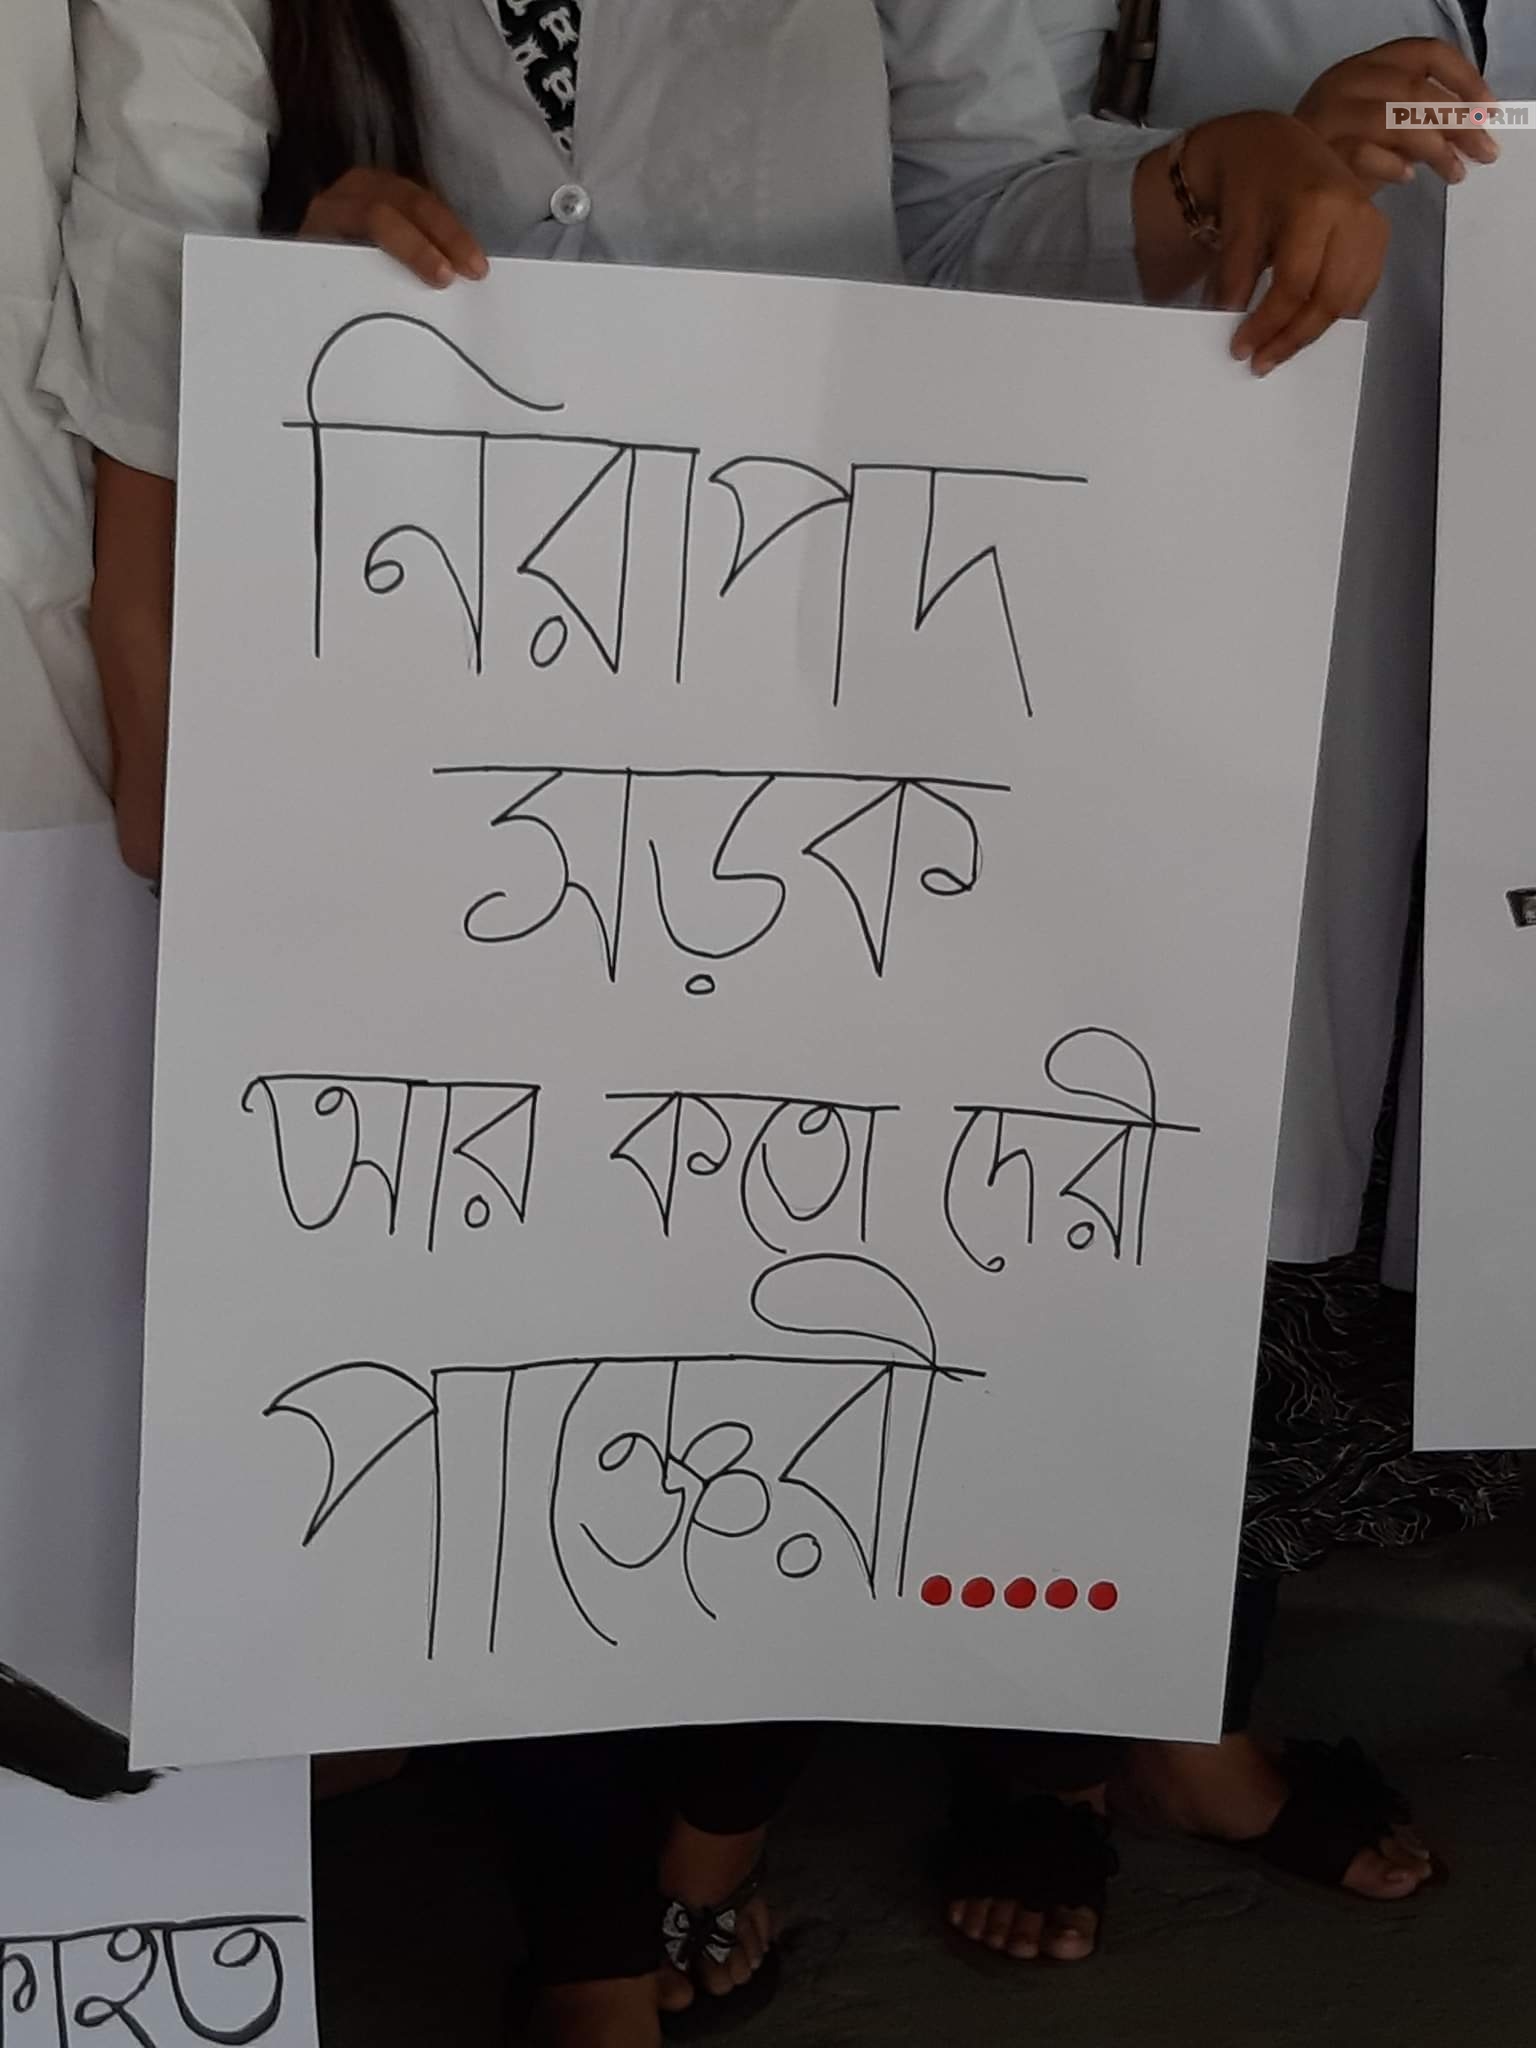 PLATFORM
নিরাপদ
সড়ক
আর কতো দেরী
পাঞ্জেরী.....